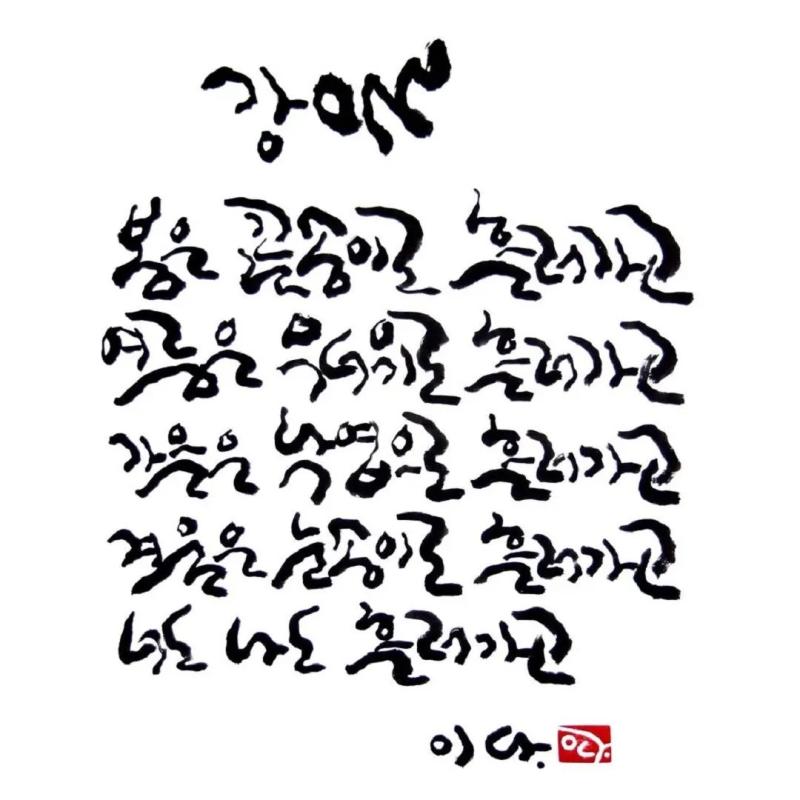 강물
봄은 꽃송이로 흘러가고
여름은 무더위로 흘러가고
가을은 낙엽으로 흘러가고
겨울은 눈송이로 흘러가고
너도 나도 흘러가고